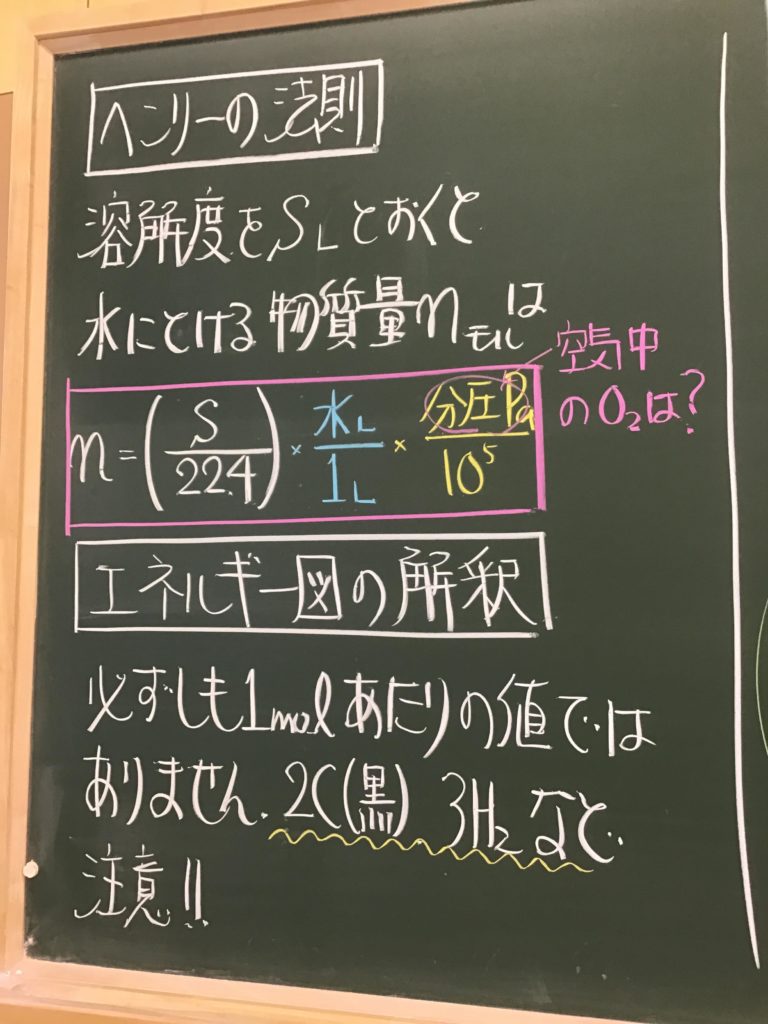 ヘンリーの法則
溶解度をS Lとおくと
水にとける物質量n モルは
n = (S/22.4) × 水L/1L × 分圧Pa/10⁵
空気中
のO₂は?
エネルギー図の解釈
必ずしも1molあたりの値では
ありません. 2C(黒) 3H₂など
注意!!